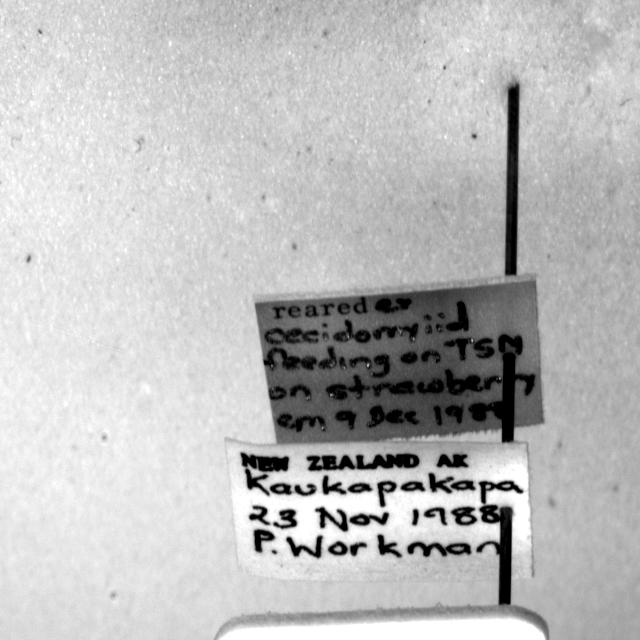 reared ex
cecidomyiid
feeding on TSM
on strawberry
em 9 Dec 1988
NEW ZEALAND AK
Kaukapakapa
23 Nov 1988
P. Workman